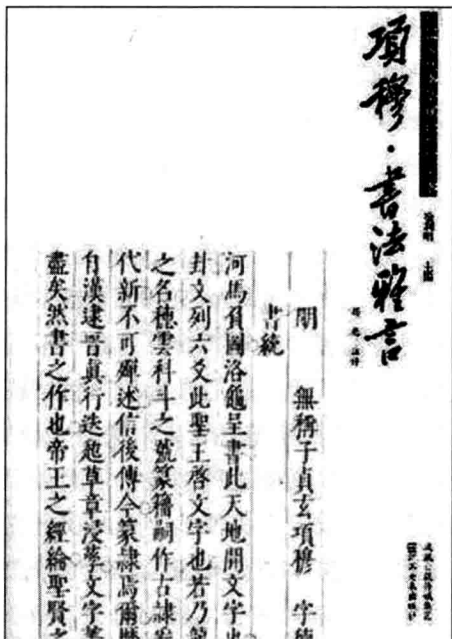 項穆·書法雅言
主編
注評
明 無稱子貞玄項穆 字
書統
河馬負圖洛龜呈書此天地開文字也
卦文列六爻此聖王啓文字也若乃
之名穗雲科斗之號篆籀嗣作古隸
代新不可殫述信後傳今篆隸焉爾
自漢逮晉真行迭起草章浸孳文字菁
盡矣然書之作也帝王之經綸聖賢之